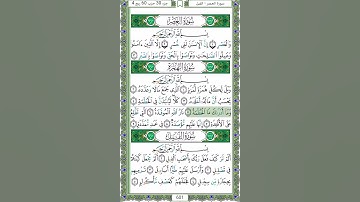 سورة العصر - الفيل
جزء 30 حزب 60 ربع 4
سُورَةُ العَصْرِ
بِسْمِ اللَّهِ الرَّحْمَٰنِ الرَّحِيمِ
وَالْعَصْرِ ۝١ إِنَّ الْإِنسَانَ لَفِي خُسْرٍ ۝٢ إِلَّا الَّذِينَ آمَنُوا
وَعَمِلُوا الصَّالِحَاتِ وَتَوَاصَوْا بِالْحَقِّ وَتَوَاصَوْا بِالصَّبْرِ ۝٣
سُورَةُ الهُمَزَةِ
بِسْمِ اللَّهِ الرَّحْمَٰنِ الرَّحِيمِ
وَيْلٌ لِّكُلِّ هُمَزَةٍ لُّمَزَةٍ ۝١ الَّذِي جَمَعَ مَالًا وَعَدَّدَهُ ۝٢
يَحْسَبُ أَنَّ مَالَهُ أَخْلَدَهُ ۝٣ كَلَّا لَيُنبَذَنَّ فِي الْحُطَمَةِ ۝٤
وَمَا أَدْرَاكَ مَا الْحُطَمَةُ ۝٥ نَارُ اللَّهِ الْمُوقَدَةُ ۝٦ الَّتِي تَطَّلِعُ
عَلَى الْأَفْئِدَةِ ۝٧ إِنَّهَا عَلَيْهِم مُّؤْصَدَةٌ ۝٨ فِي عَمَدٍ مُّمَدَّدَةٍ ۝٩
سُورَةُ الفِيلِ
بِسْمِ اللَّهِ الرَّحْمَٰنِ الرَّحِيمِ
أَلَمْ تَرَ كَيْفَ فَعَلَ رَبُّكَ بِأَصْحَابِ الْفِيلِ ۝١ أَلَمْ يَجْعَلْ كَيْدَهُمْ
فِي تَضْلِيلٍ ۝٢ وَأَرْسَلَ عَلَيْهِمْ طَيْرًا أَبَابِيلَ ۝٣ تَرْمِيهِم
بِحِجَارَةٍ مِّن سِجِّيلٍ ۝٤ فَجَعَلَهُمْ كَعَصْفٍ مَّأْكُولٍ ۝٥
601